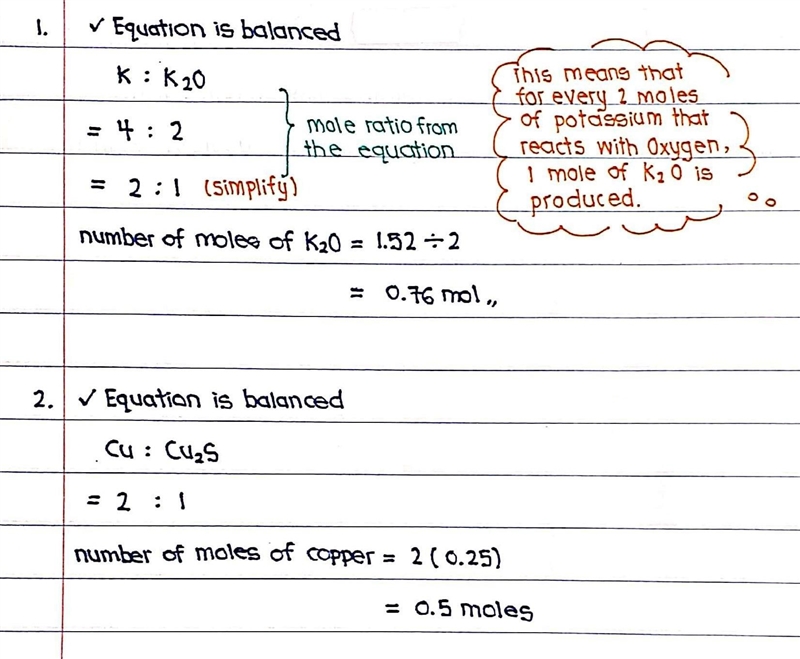 1. ✓ Equation is balanced
K : K₂O
= 4 : 2
= 2 : 1 (simplify)
mole ratio from
the equation
This means that
for every 2 moles
of potassium that
reacts with Oxygen,
1 mole of K₂O is
produced.
number of moles of K₂O = 1.52 ÷ 2
= 0.76 mol,,
2. ✓ Equation is balanced
Cu : Cu₂S
= 2 : 1
number of moles of copper = 2 (0.25)
= 0.5 moles